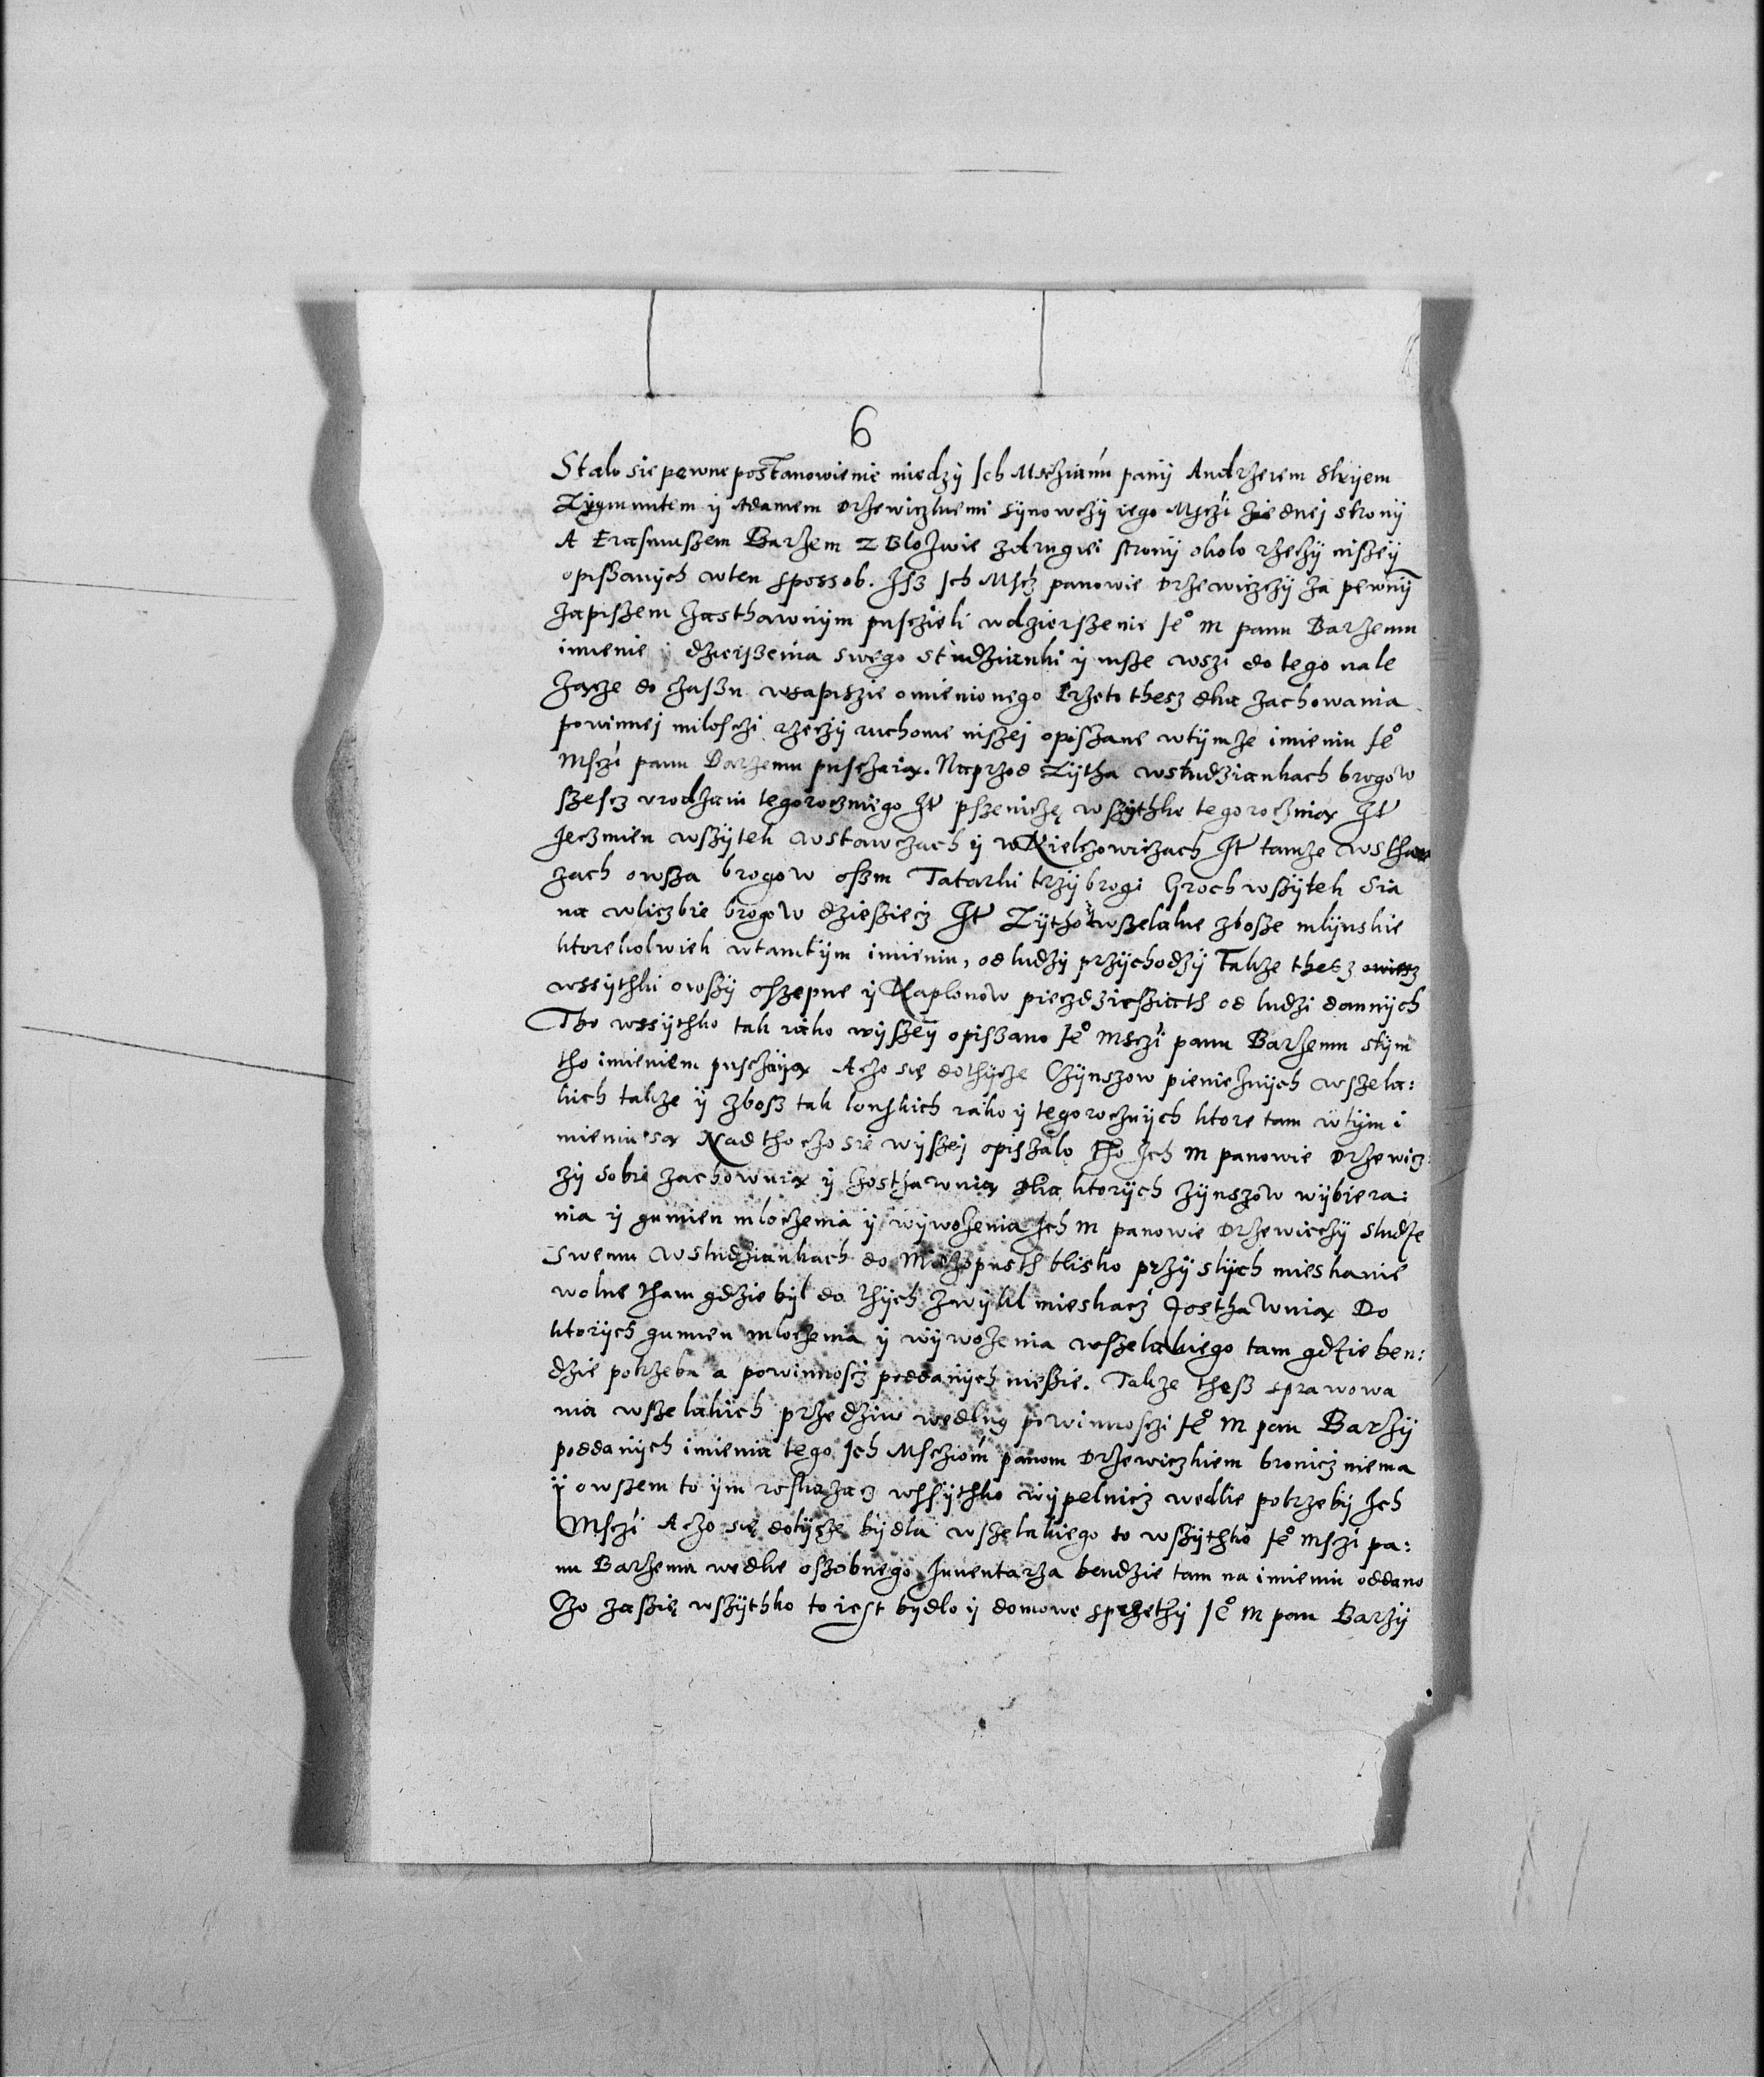 6
Stalo sie pewne postanowienie miedzÿ Jch Mscziami panÿ Andrzeiem Strÿem
Zÿgmuntem ÿ Adamem Drzewiczkiemi sÿnowczÿ iego Msczi ziednej stronÿ
A Erasmuszem Barzem z Blozwie zdrugiei stronÿ okolo rzeczÿ niszeÿ
opiszanÿch wten spossob. Jsz Jch Mscz panowie Drzewiczczÿ za pewnÿ
zapiszem zasthawnÿm pusczieli wdzierszenie Jeº M panu Barzemu
imienie dzierszenia swego Studzianki ÿ insze wszi do tego nale
zacze do czaszu wsapiszie omienionego Przeto thesz dlia zachowania
powinnej miloschi rzeczÿ ruchome niszej opiszane wtÿmze imieniu Jeº
Msczi panu Barzemu pusczaia. Naprzod Zÿtha wstudziankach brogow
szescz urodzaiu tegorocznego It pszeniczę wszÿthke tegorocznia It
Jeczmien wszÿtek wstawczach ÿ w Kielczowiczach It tamze wstaw
zach owsza brogow oszm Tatarki trzÿ brogi Groch wszÿtek Sia
na wliczbie brogow dziesziecz It Zÿtho ÿ wszelakie zbosze mlÿnskie
ktorekolwiek wtamtÿm imieniu, od ludzÿ przÿchodzÿ Takze thesz
wssÿthki owszÿ oszepne ÿ Kaplonow pieczdziesziath od ludzi dannÿch
Tho wssÿthko tak iako wÿszeÿ opiszano Jeº Msczi panu Barzemu stÿm
tho imieniem pusczaÿa Aczo się dothÿcze Czÿnszow pienieznÿch wszela:
kich takze ÿ zbosz tak lonskich iako ÿ tegorocznÿch ktore tam wtÿm i
mieniu sa Nad tho czo sie wÿszej opiszalo Tho Jch M panowie Drzewicz:
zÿ sobie zachowuia ÿ zosthawuia Dlia ktorÿch czÿnszow wÿbiera:
nia ÿ gumien mloczenia ÿ wÿwozenia Jch M panowie Drzewiczczÿ Sludze
swemu wstudziankach do Mięszopusth blisko przÿslÿch mieskanie
wolne tham gdzie bÿl do thÿch zwÿkl mieskacz zosthawuia Do
ktorÿch gumien mloczenia ÿ wÿwozenia wszelakiego tam gdzie ben:
dzie potrzeba a powinnoscz poddanÿch niesie. Takze thesz sprawowa
nia wszelakich przedziw wedlug powinnosczi Jeº M pan Barzÿ
poddanÿch imienia tego Jch Msciom panom Drzewiczkiem bronicz niema
ÿ owszem to ÿm roskazacz wssÿthko wÿpelnicz wedlie potrzebÿ Jch
Msczi Aczo się dotÿcze bÿdla wszelakiego to wszÿthko Jeº Msczi pa:
nu Barzemu wedlie oszobnego Inuentarza bendzie tam na imieniu oddano
Czo zaszię wszÿthko to iest bydlo ÿ domowe sprzethÿ Jeº M pan Barzÿ